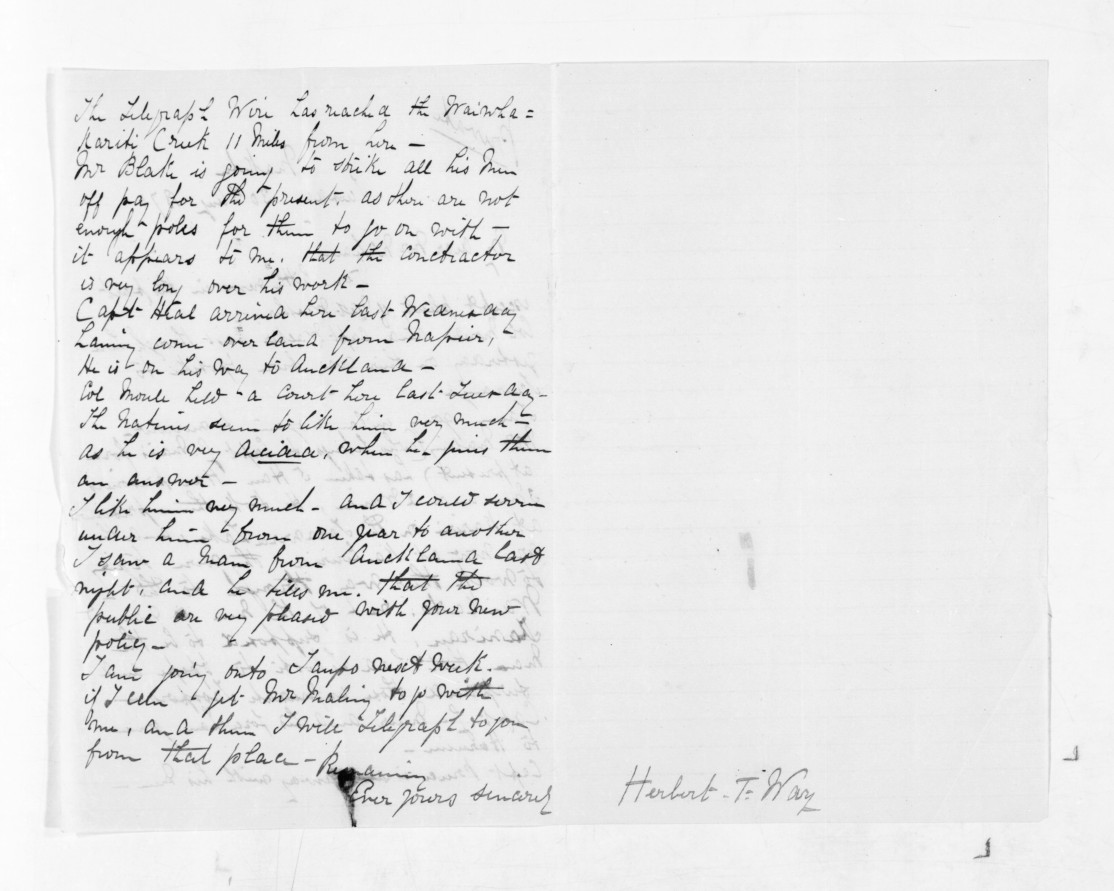 The Telegraph Wire has reached the Waiwha=
kariti Creek 11 Miles from here —
Mr Blake is going to strike all his Men
off pay for the present. as there are not
enough poles for them to go on with —
it appears to me. that the contractor
is very long over his work —
Capt Heal arrived here last Wednesday
having come overland from Napier, —
He is on his way to Auckland —
Col Moule held a Court here last Tuesday —
The Natives seem to like him very much —
as he is very decided, when he gives them
an answer —
I like him very much — and I could serve
under him from one year to another
I saw a man from Auckland last
night, and he tells me. that the
public are very pleased with your new
policy —
I am going onto Taupo next week.
if I can get Mr Maling to go with
me, and then I will Telegraph to you
from that place — Remaining
Ever yours sincerely
Herbert - T= Way